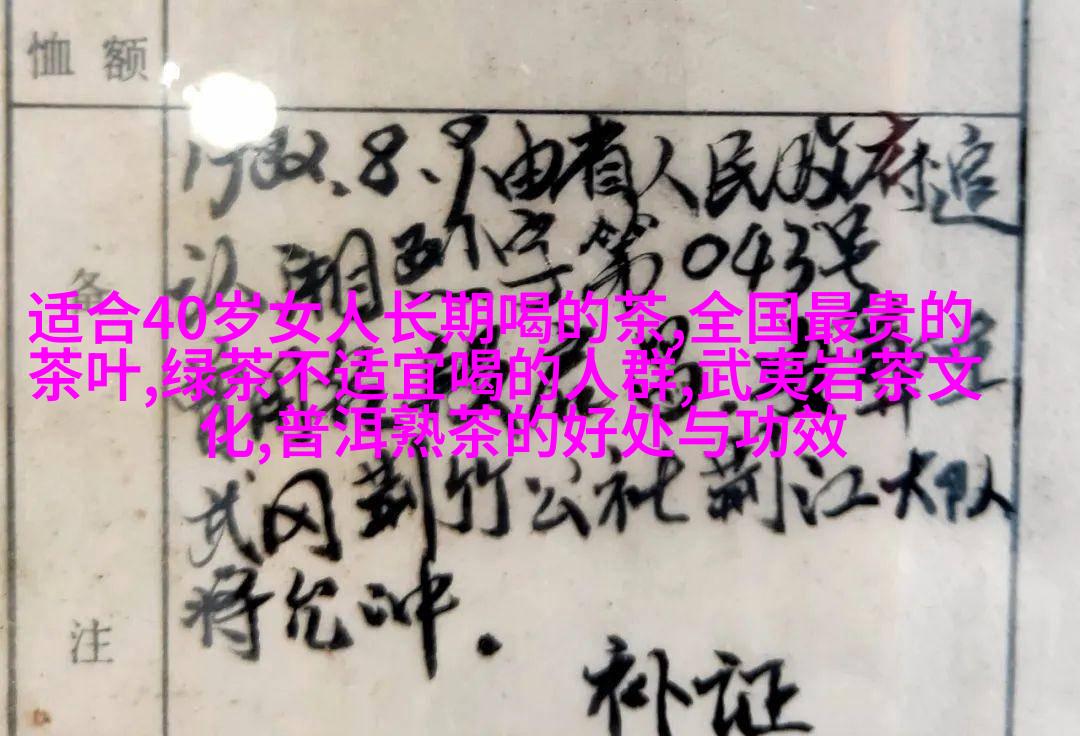 恤额
1982.8.9由省人民政府追
认,湘烈字第043号
适合40岁女人长期喝的茶,全国最贵的
茶叶,绿茶不适宜喝的人群,武夷岩茶文
化,普洱熟茶的好处与功效
备
武冈荆竹公社荆江大队
蒋允冲.
注
补证